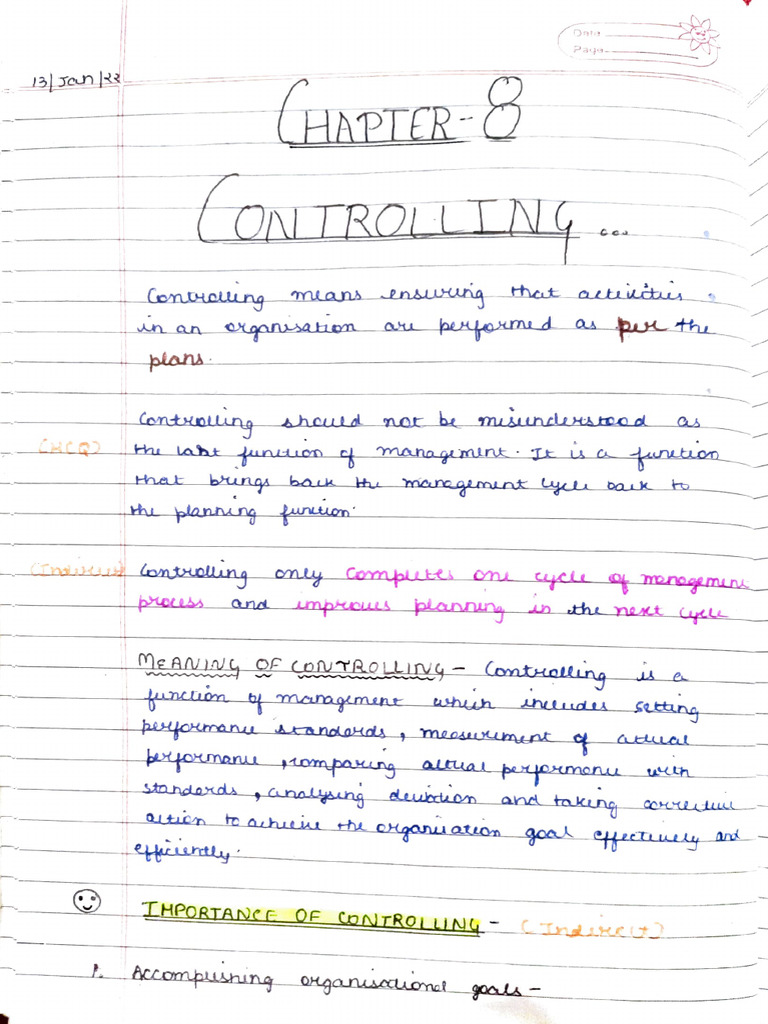 Date
Page
13/Jan/22
CHAPTER-8
CONTROLLING...
Controlling means ensuring that activities
in an organisation are performed as per the
plans.
Controlling should not be misunderstood as
(MCQ) the last function of management. It is a function
that brings back the management cycle back to
the planning function.
(Indirect) Controlling only completes one cycle of management
process and improves planning in the next cycle
MEANING OF CONTROLLING - Controlling is a
function of management which includes setting
performance standards, measurement of actual
performance, comparing actual performance with
standards, analysing deviation and taking corrective
action to achieve the organisation goal effectively and
efficiently.
IMPORTANCE OF CONTROLLING - (Indirect)
1. Accomplishing organisational goals -